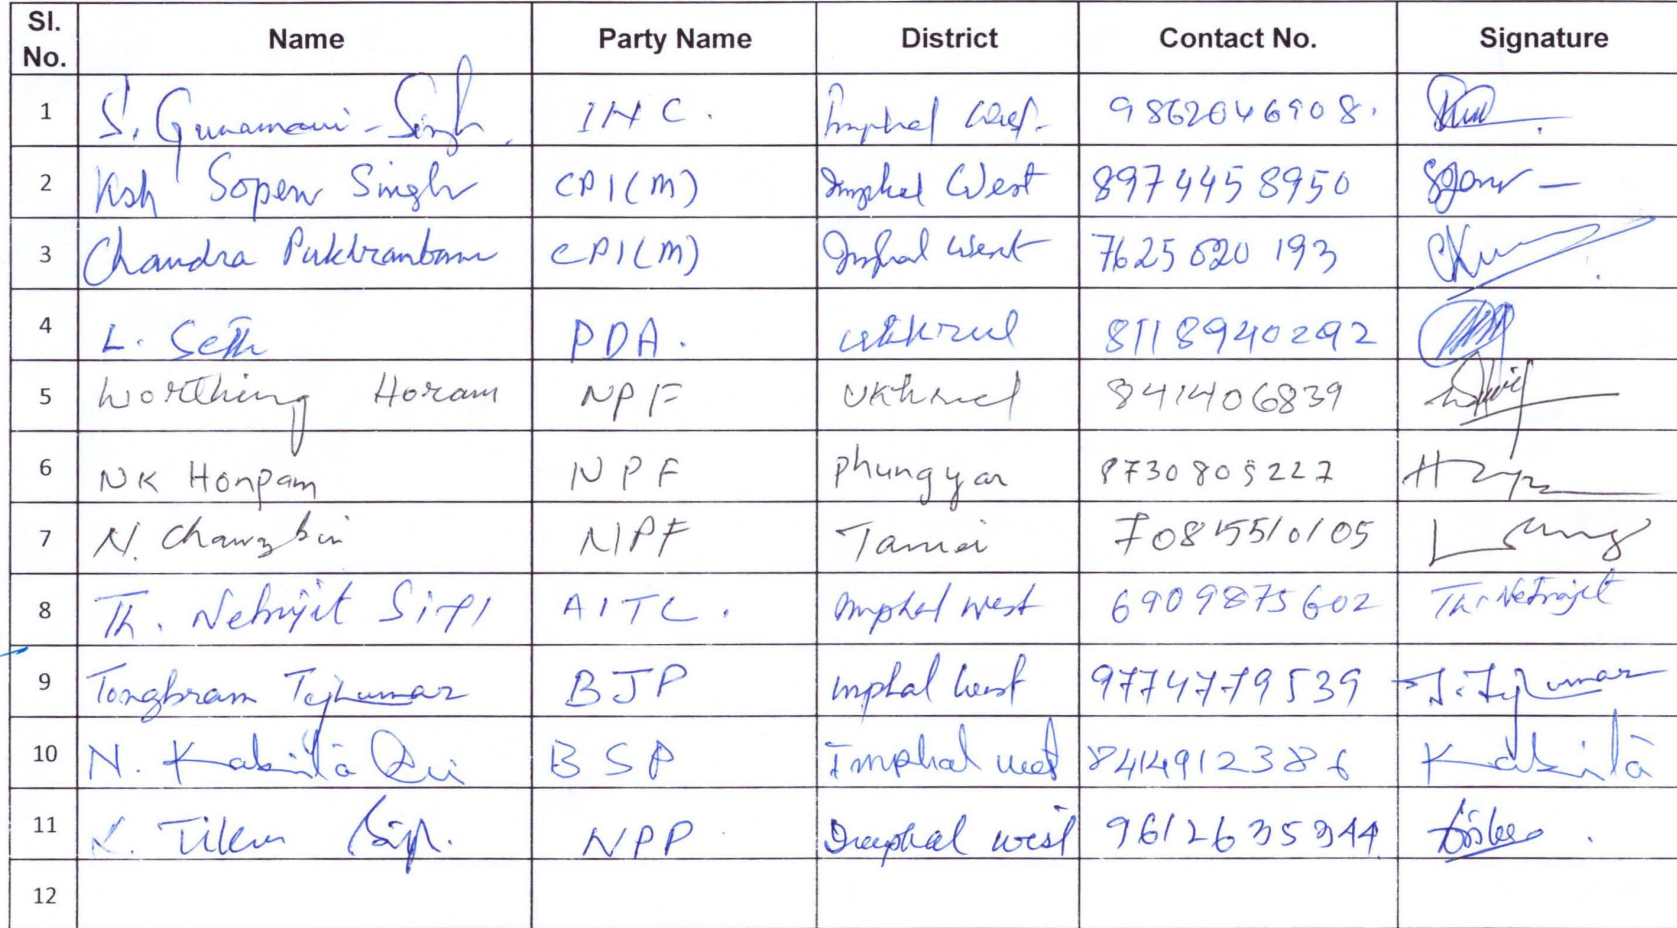 Sl. No. Name Party Name District Contact No. Signature
1 S. Gunamani Singh INC. Imphal West 9862046908.
2 Ksh Sopen Singh CPI(M) Imphal West 8974458950
3 Chandra Pukhrambam CPI(M) Imphal West 7625020193
4 L. Seth PDA. Ukhrul 8118940292
5 Worthing Horam NPF Ukhrul 8414406839
6 NK Honpam NPF Phungyar 8730809227
7 N. NPF Tamei
8 Th. Netrajit AITC. Imphal West 6909875602 Th. Netrajit
9 Tongbram Tejkumar BJP Imphal West 9774779539 T. Tejkumar
10 N. Kabita BSP Imphal west 8414912386 Kabita
11 NPP Imphal west 9612635344
12